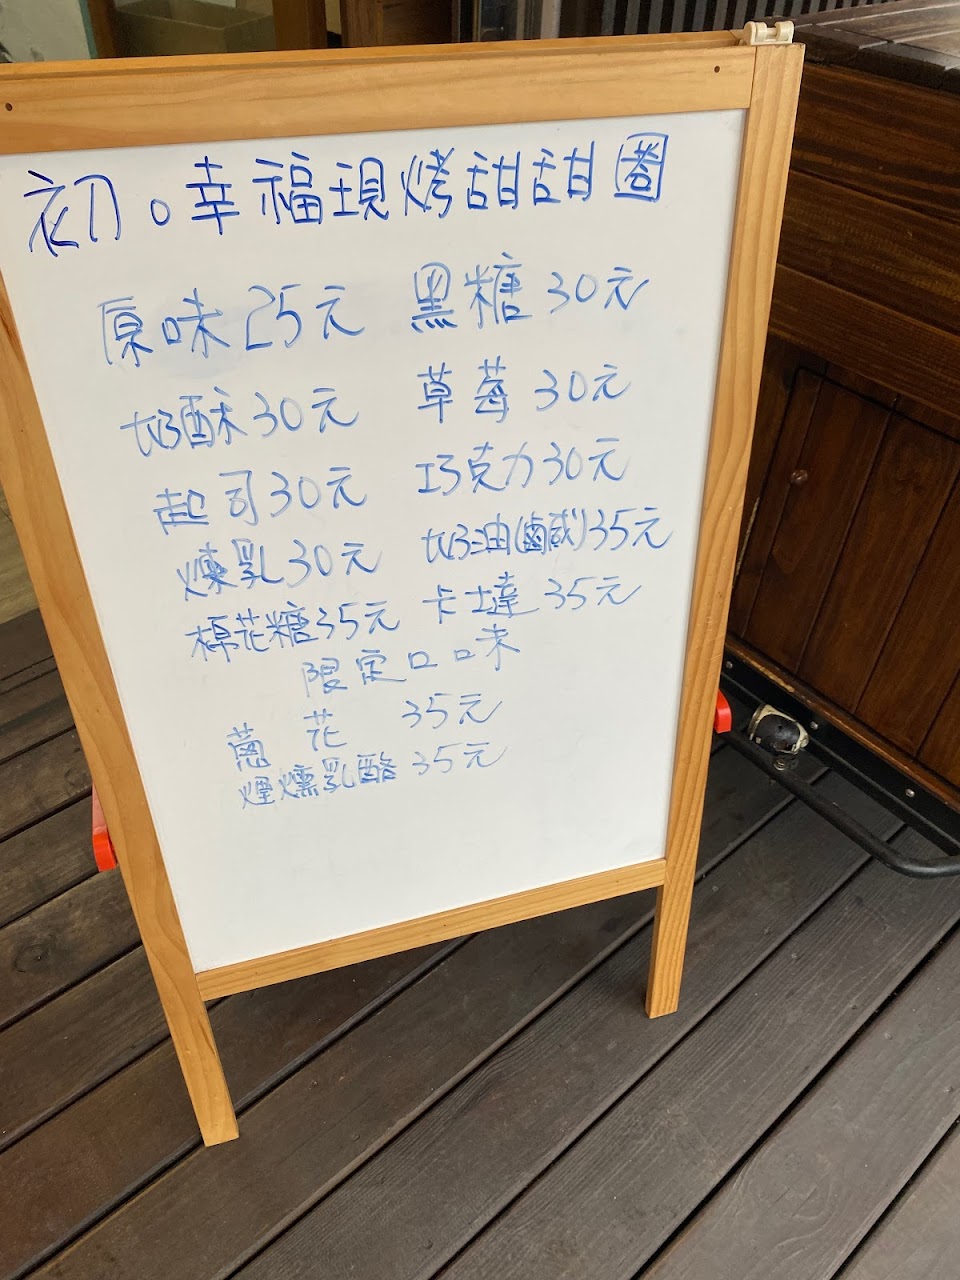 初。幸福現烤甜甜圈
原味25元 黑糖30元
奶酥30元 草莓30元
起司30元 巧克力30元
煉乳30元 奶油(鹹)35元
棉花糖35元 卡士達35元
限定口口味
蔥花 35元
煙燻乳酪 35元